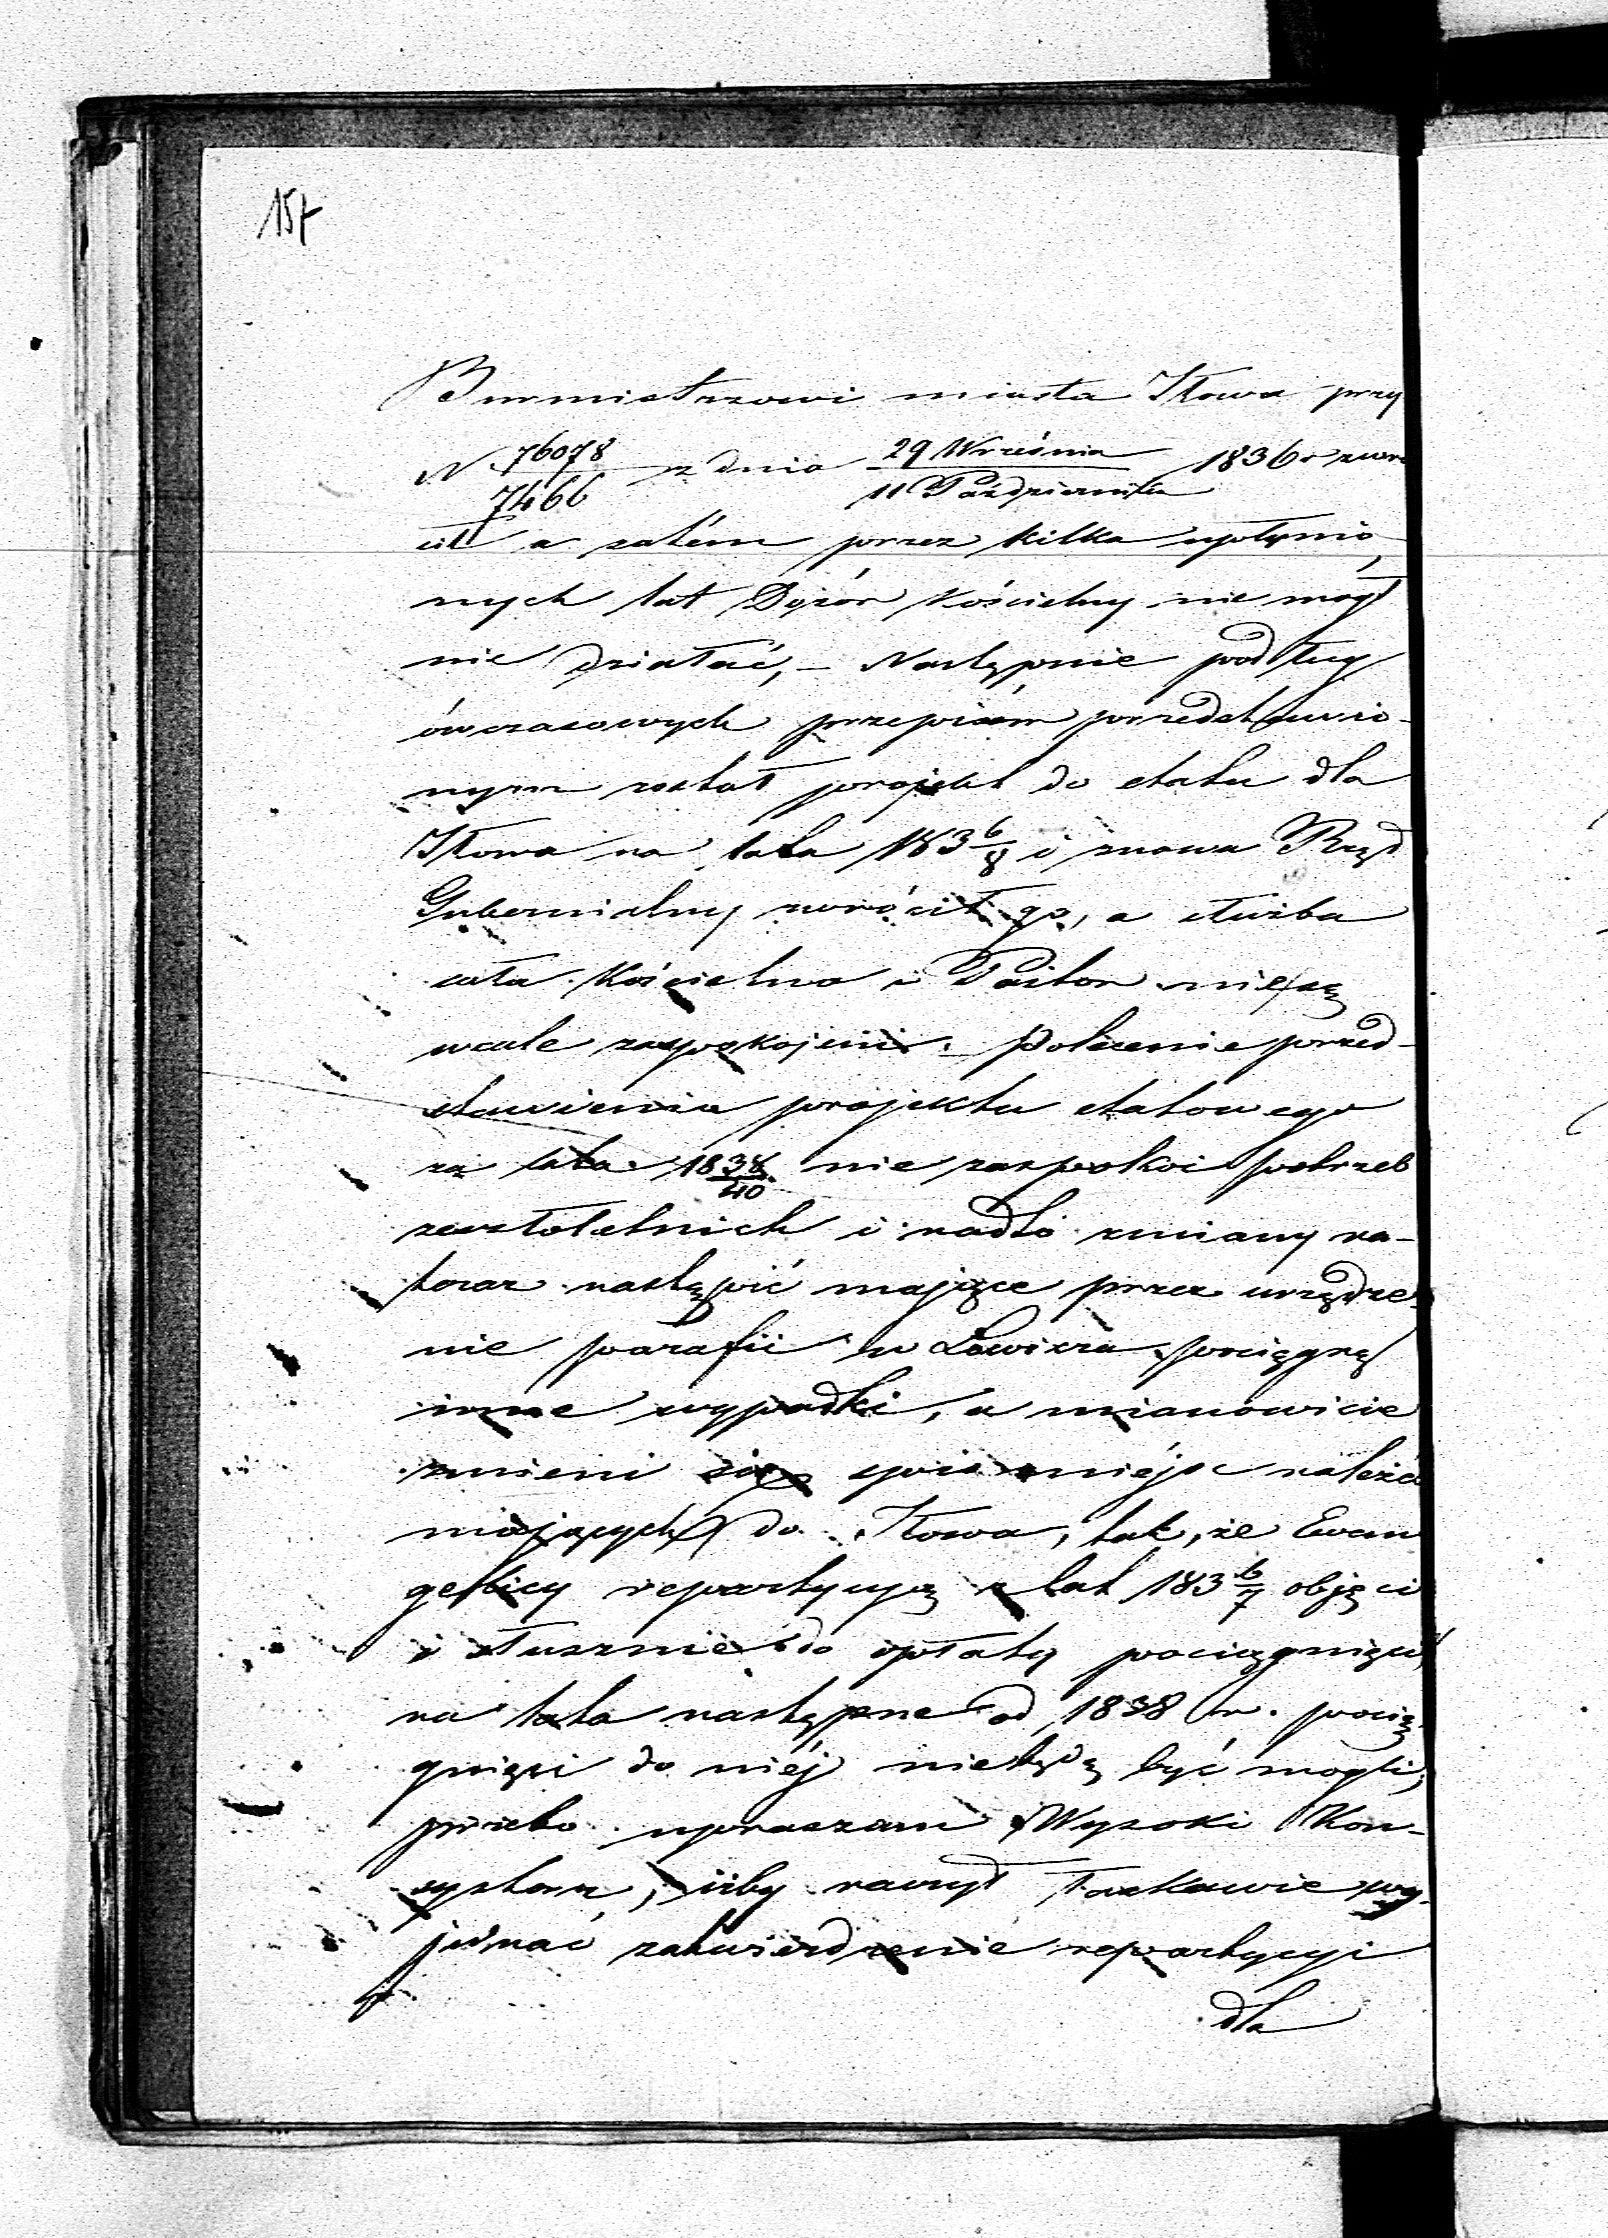 157
Burmistrzowi miasta Iłowa przy
N. 76078/7466 z dnia 29 Września/11 Października 1836 r zwró
cił a zatém przez kilka upłynio
nych lat Dozór Kościelny nie mógł
nie działać, – Następnie podług
ówczasowych przepisów przedstawio-
nym został projekt do etatu dla
Iłowa na lata 183 6/8 i znowu Rząd
Gubernialny zwrócił go, a służba
cała Kościelna i Pastor nie są
wcale zaspokojeni. – Polecenie przed-
stawienia projektu etatowego
za lata 18 38/40 nie zaspokoi potrzeb
zeszłoletnich i nadto zmiany na-
teraz nastąpić mające przez urządze-
nie parafii w Łowiczu pociągną
inne wypadki, a mianowicie
zmieni się spis miéjsc należéć
mających do Iłowa, tak, że Ewan
gelicy repartycyą z lat 183 6/7 objęci
i słusznie do opłaty pociągnięci,
na lata następne od 1838 r. pocią
gnięci do niéj niebędą być mogli;
przeto upraszam Wysoki Kon-
systorz, iżby raczył łaskawie wy-
jednać zatwierdzenie repartycyi
dla